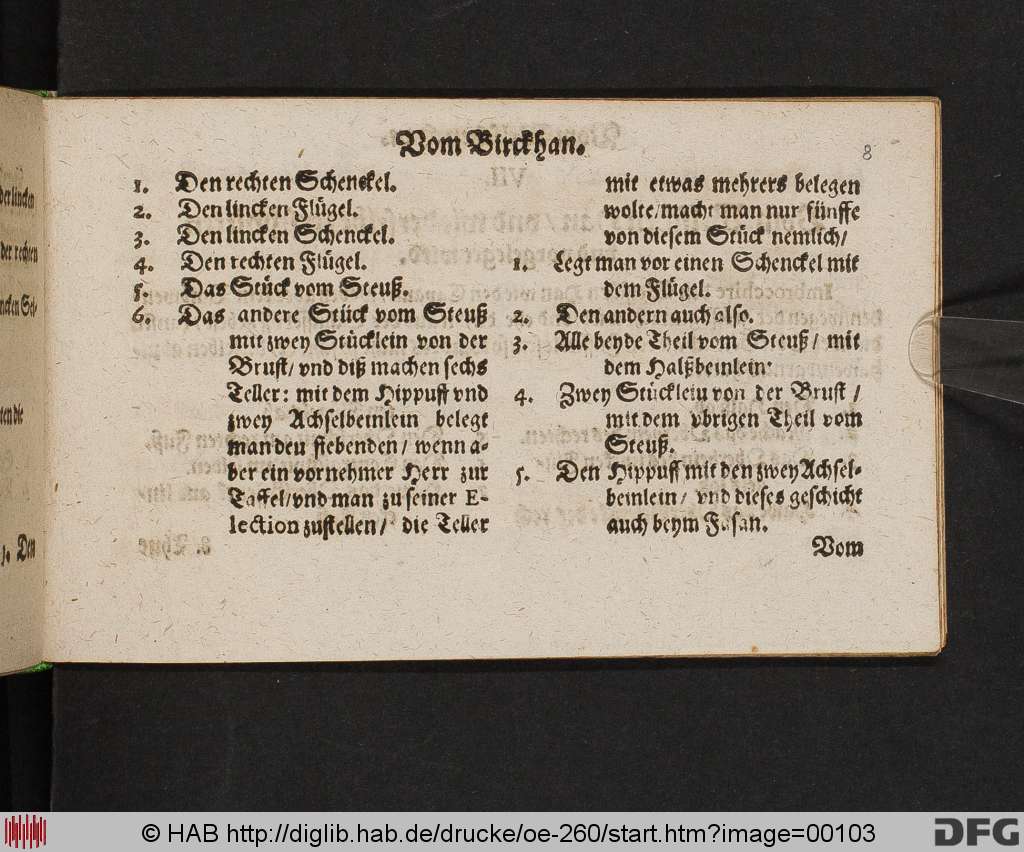 Vom Birckhan.
8
1. Den rechten Schenckel.
2. Den lincken Flügel.
3. Den lincken Schenckel.
4. Den rechten Flügel.
5. Das Stück vom Steuß.
6. Das andere Stück vom Steuß
mit zwey Stücklein von der
Brust/ vnd diß machen sechs
Teller: mit dem Hippuff vnd
zwey Achselbeinlein belegt
man deu siebenden/ wenn a-
ber ein vornehmer Herr zur
Taffel/vnd man zu seiner E-
lection zustellen/ die Teller
mit etwas mehrers belegen
wolte/macht man nur fünffe
von diesem Stück nemlich/
1. Legt man vor einen Schenckel mit
dem Flügel.
2. Den andern auch also.
3. Alle beyde Theil vom Steuß/ mit
dem Halßbeinlein.
4. Zwey Stückleiu von der Brust /
mit dem vbrigen Theil vom
Steuß.
5. Den Hippuff mit den zwey Achsel-
beinlein/ vnd dieses geschicht
auch beym Fasan.
Vom
der lincken
der rechten
ncken Sei-
ten die
5. Den
© HAB http://diglib.hab.de/drucke/oe-260/start.htm?image=00103
DFG